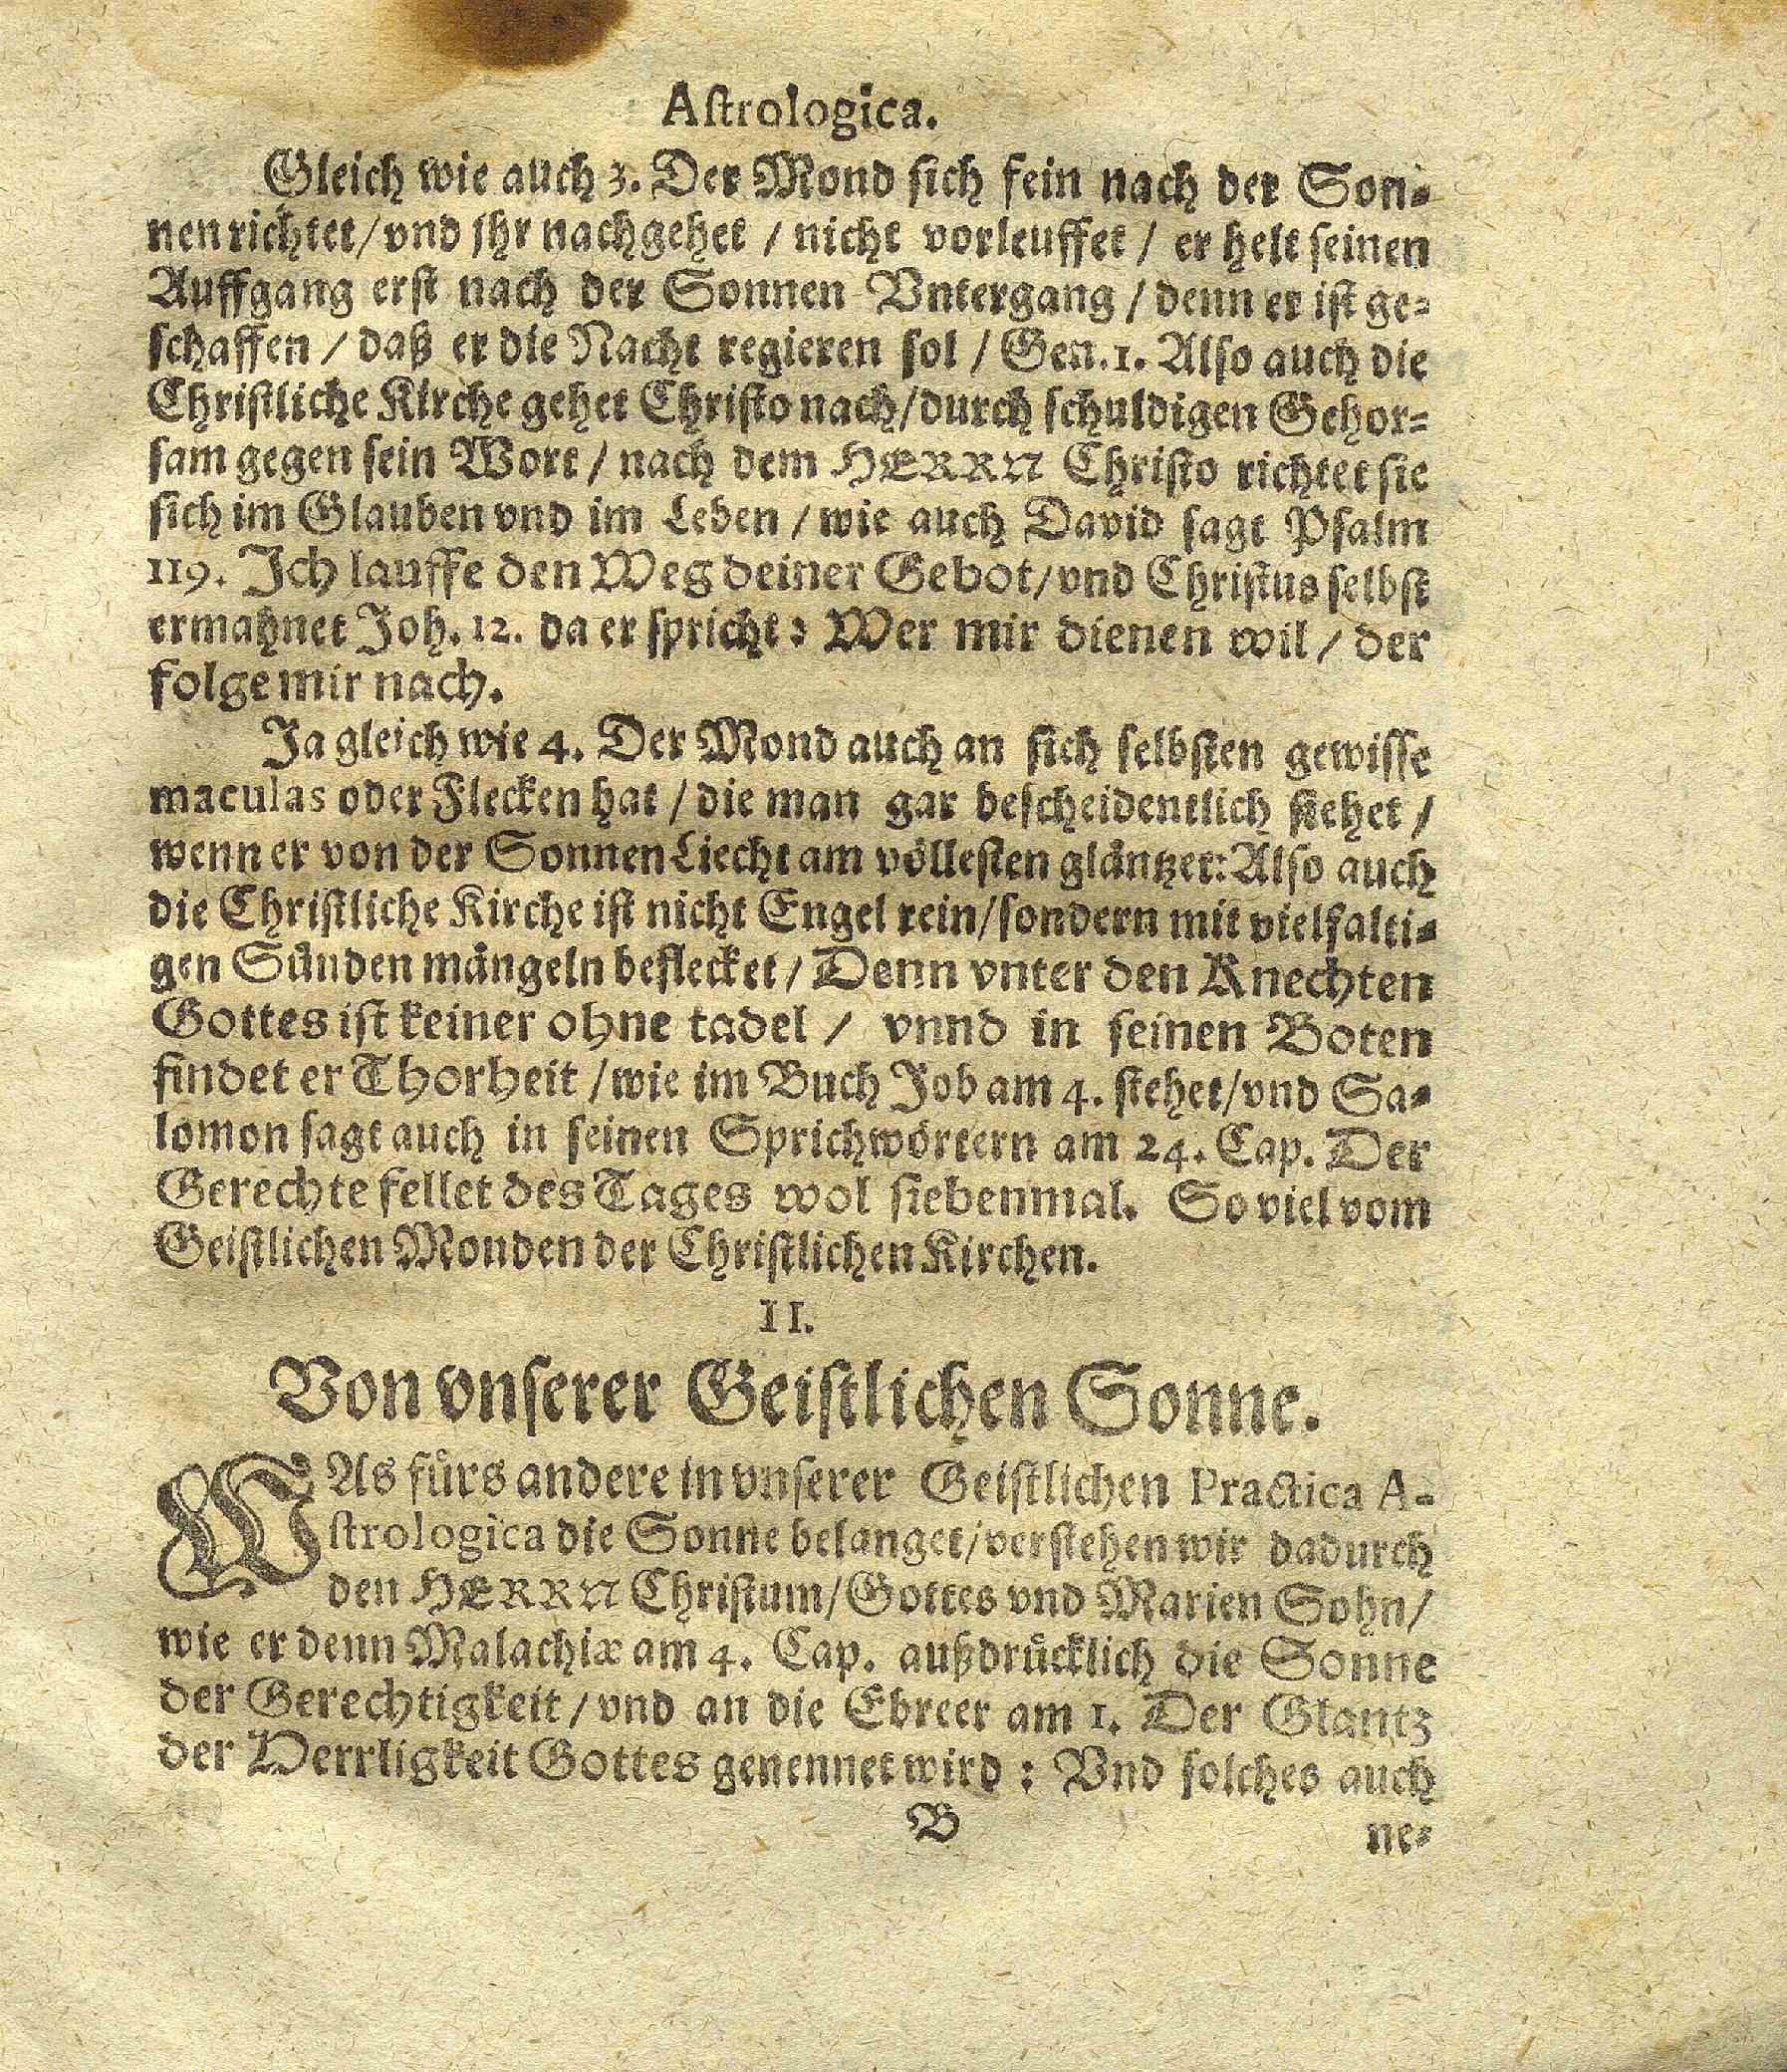 Astrologica.
Gleich wie auch 3. Der Mond sich fein nach der Son-
nen richtet/vnd jhr nachgehet / nicht vorleuffet / er helt seinen
Auffgang erst nach der Sonnen Vntergang / denn er ist ge-
schaffen / daß er die Nacht regieren sol / Gen. 1. Also auch die
Christliche Kirche gehet Christo nach/durch schuldigen Gehor-
sam gegen sein Wort / nach dem HERRN Christo richtet sie
sich im Glauben vnd im Leben / wie auch David sagt Psalm
119. Ich lauffe den Weg deiner Gebot/vnd Christus selbst
ermahnet Joh. 12. da er spricht: Wer mir dienen wil / der
folge mir nach.
Ja gleich wie 4. Der Mond auch an sich selbsten gewisse
maculas oder Flecken hat / die man gar bescheidentlich siehet /
wenn er von der Sonnen Liecht am völlesten gläntzet: Also auch
die Christliche Kirche ist nicht Engel rein/sondern mit vielfalti-
gen Sünden mängeln beflecket / Denn vnter den Knechten
Gottes ist keiner ohne tadel / vnnd in seinen Boten
findet er Thorheit /wie im Buch Job am 4. stehet/vnd Sa-
lomon sagt auch in seinen Sprichwörtern am 24. Cap. Der
Gerechte fellet des Tages wol siebenmal. So viel vom
Geistlichen Monden der Christlichen Kirchen.
II.
Von vnserer Geistlichen Sonne.
WAs fürs andere in vnserer Geistlichen Practica A-
strologica die Sonne belanget/verstehen wir dadurch
den HERRN Christum/Gottes vnd Marien Sohn/
wie er denn Malachiæ am 4. Cap. außdrücklich die Sonne
der Gerechtigkeit / vnd an die Ebreer am 1. Der Glantz
der Herrligkeit Gottes genennet wird : Vnd solches auch
B
ne-